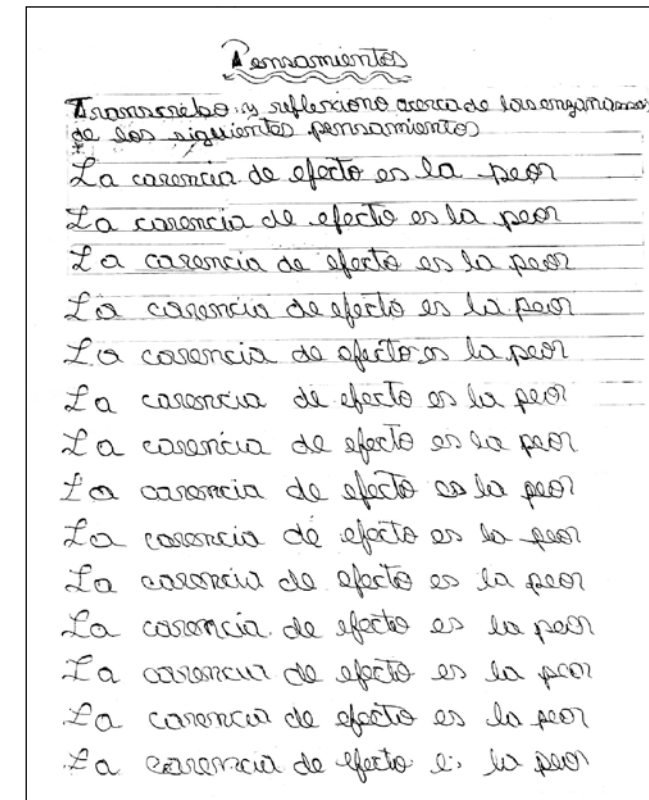 Pensamientos
Transcribo y reflexiono acerca de las
de los siguientes pensamientos
La carencia de efecto es la peor
La carencia de efecto es la peor
La carencia de efecto es la peor
La carencia de efecto es la peor
La carencia de efecto es la peor
La carencia de efecto es la peor
La carencia de efecto es la peor
La carencia de efecto es la peor
La carencia de efecto es la peor
La carencia de efecto es la peor
La carencia de efecto es la peor
La carencia de efecto es la peor
La carencia de efecto es la peor
La carencia de efecto e: la peor